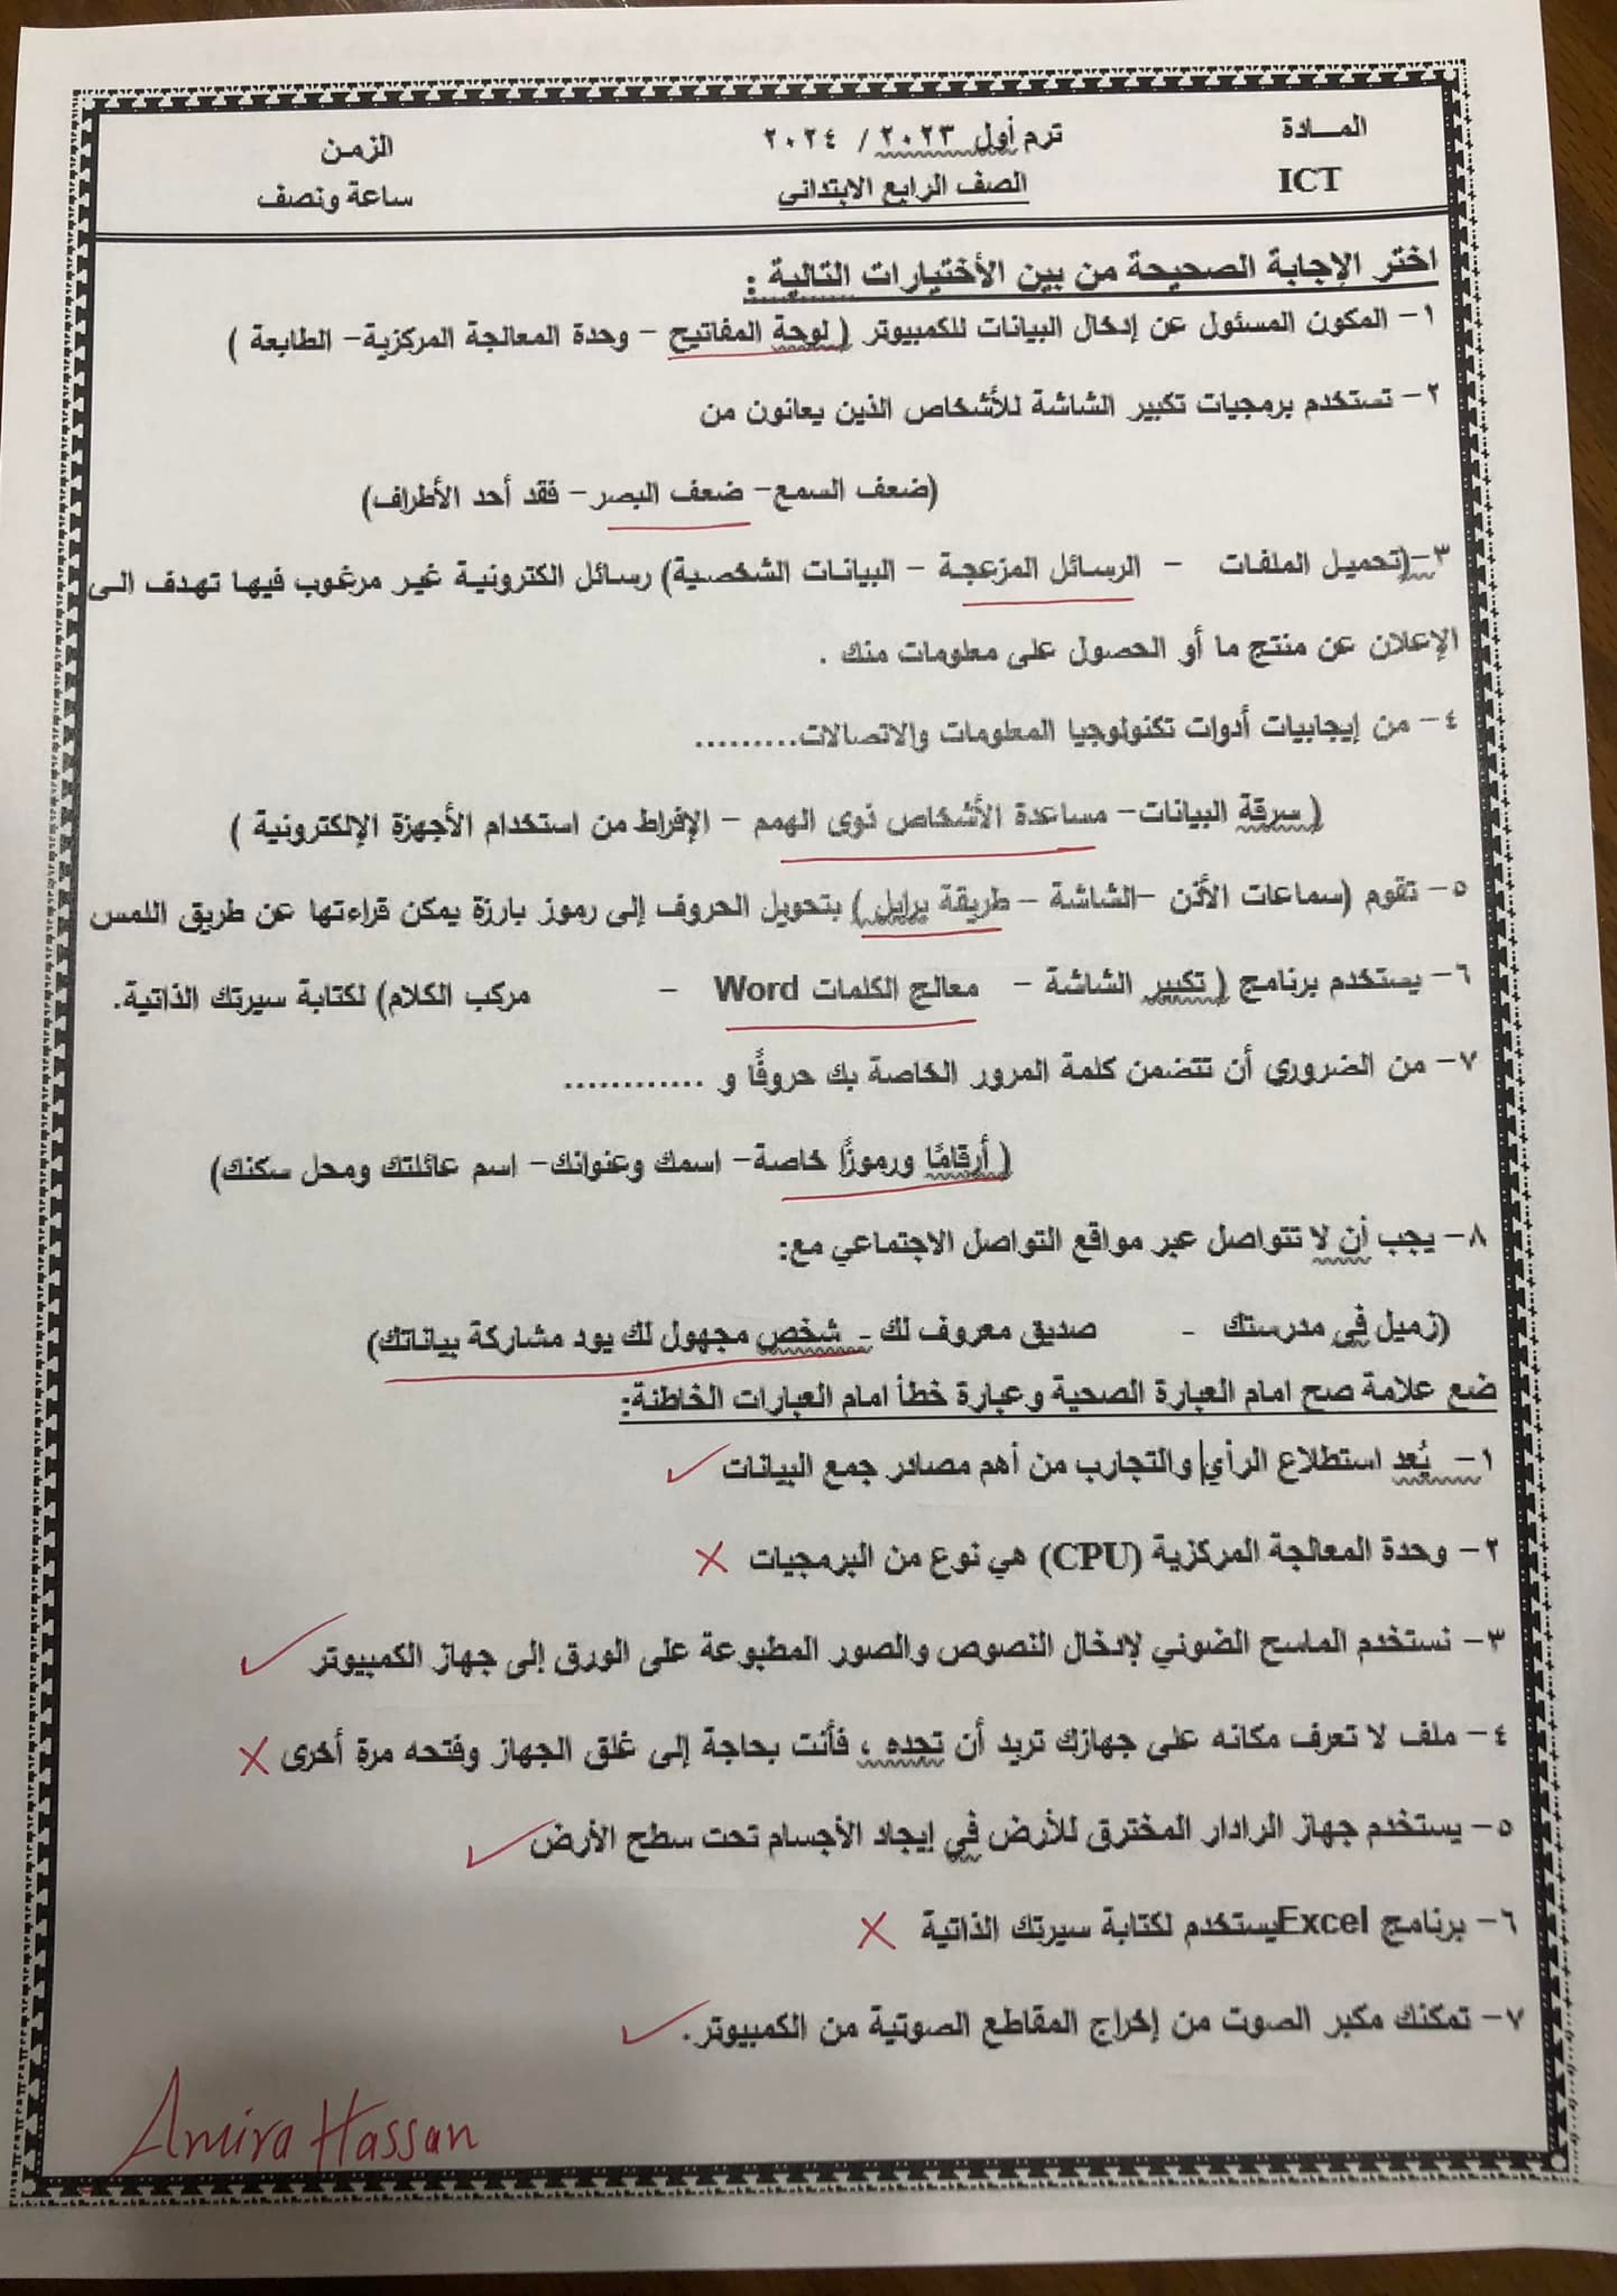 المـــادة
ICT
ترم أول ٢٠٢٣ / ٢٠٢٤
الصف الرابع الابتدائى
الزمن
ساعة ونصف
اختر الإجابة الصحيحة من بين الأختيارات التالية :
١- المكون المسئول عن إدخال البيانات للكمبيوتر ( لوحة المفاتيح - وحدة المعالجة المركزية- الطابعة )
٢- تستخدم برمجيات تكبير الشاشة للأشخاص الذين يعانون من
(ضعف السمع- ضعف البصر- فقد أحد الأطراف)
٣-(تحميل الملفات - الرسائل المزعجة - البيانات الشخصية) رسائل الكترونية غير مرغوب فيها تهدف الى
الإعلان عن منتج ما أو الحصول على معلومات منك .
٤- من إيجابيات أدوات تكنولوجيا المعلومات والاتصالات.........
( سرقة البيانات- مساعدة الأشخاص ذوى الهمم - الإفراط من استخدام الأجهزة الإلكترونية )
٥- تقوم (سماعات الأذن -الشاشة - طريقة برايل ) بتحويل الحروف إلى رموز بارزة يمكن قراءتها عن طريق اللمس
٦- يستخدم برنامج ( تكبير الشاشة - معالج الكلمات Word - مركب الكلام) لكتابة سيرتك الذاتية.
٧- من الضروري أن تتضمن كلمة المرور الخاصة بك حروفًا و ............
( أرقامًا ورموزًا خاصة- اسمك وعنوانك- اسم عائلتك ومحل سكنك)
٨- يجب أن لا تتواصل عبر مواقع التواصل الاجتماعي مع:
(زميل فى مدرستك - صديق معروف لك - شخص مجهول لك يود مشاركة بياناتك)
ضع علامة صح امام العبارة الصحية وعبارة خطأ امام العبارات الخاطئة:
١- يُعد استطلاع الرأي والتجارب من أهم مصادر جمع البيانات ✓
٢- وحدة المعالجة المركزية (CPU) هي نوع من البرمجيات ✗
٣- نستخدم الماسح الضوئي لإدخال النصوص والصور المطبوعة على الورق إلى جهاز الكمبيوتر ✓
٤- ملف لا تعرف مكانه على جهازك تريد أن تجده ، فأنت بحاجة إلى غلق الجهاز وفتحه مرة أخرى ✗
٥- يستخدم جهاز الرادار المخترق للأرض في إيجاد الأجسام تحت سطح الأرض ✓
٦- برنامج Excelيستخدم لكتابة سيرتك الذاتية ✗
٧- تمكنك مكبر الصوت من إخراج المقاطع الصوتية من الكمبيوتر. ✓
Amira Hassan